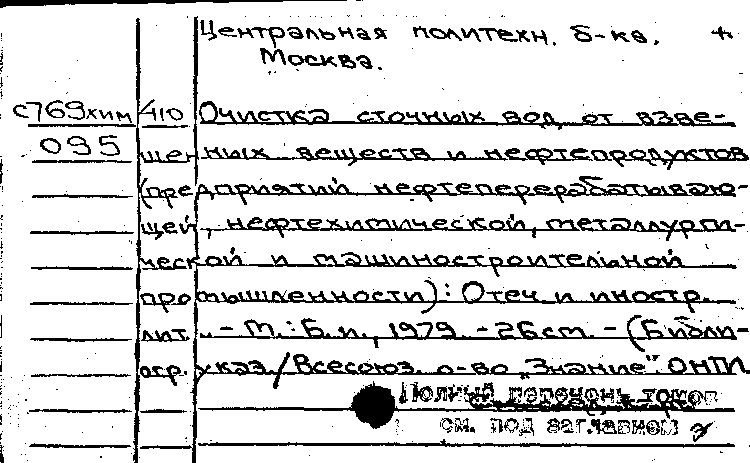 Центральная политехн. б-ка,
Москва.
с769хим 410 Очистка сточных вод от взве-
095 шенных веществ и нефтепродуктов
(предприятий нефтеперерабатываю-
щей, нефтехимической, металлурги-
ческой и машиностроительной
промышленности): Отеч. и иностр.
лит. - М.: Б.и., 1979. - 26см. - (Библи-
огр. указ./Всесоюз. о-во "Знание". ОНТИ
Полный перечень томов
см. под заглавием